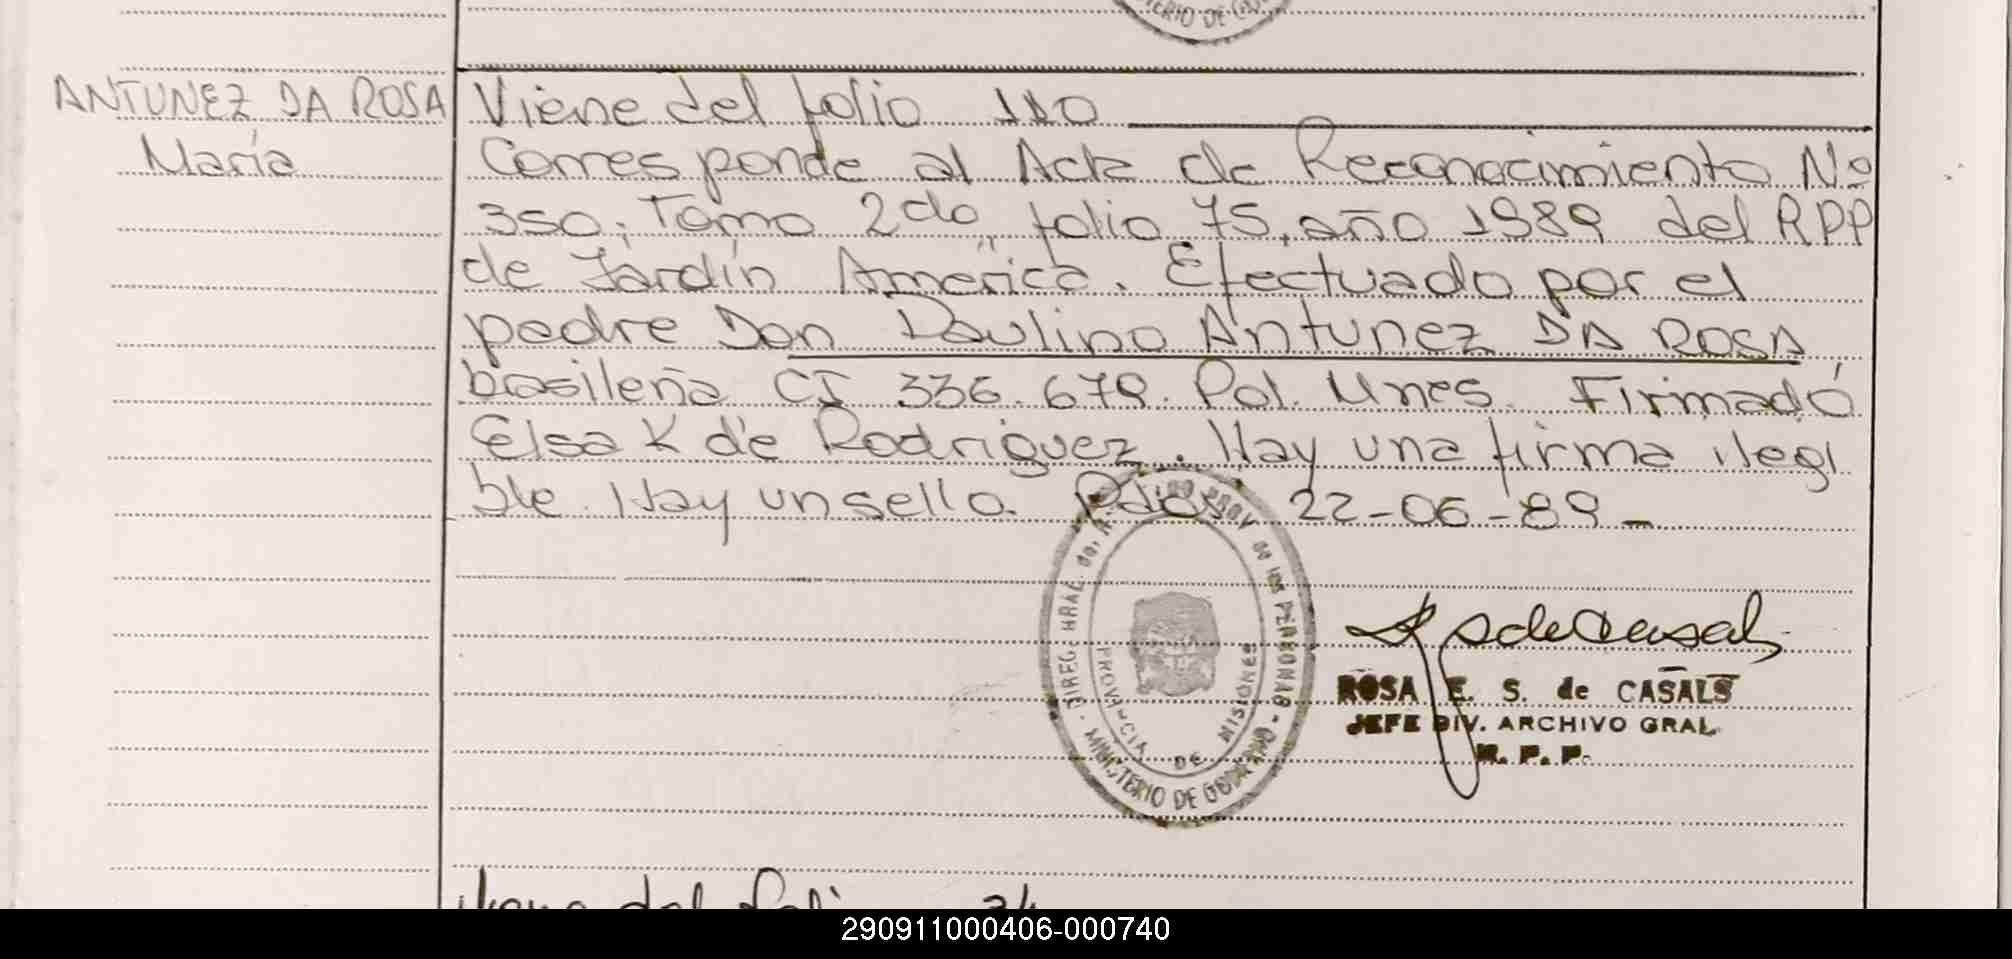 MINISTERIO DE GO
ANTUNEZ DA ROSA
María
Viene del folio 110
Corresponde al Acta de Reconocimiento Nº
350, Tomo 2do, folio 75, año 1989 del RPP
de Jardín America. Efectuado por el
padre Don Paulino Antunez DA ROSA
basileña CI 336.679. Pol. Mnes. Firmadó
Elsa K de Rodriguez. Hay una firma ilegi
ble. Hay un sello. Pdas. 22-06-89-
DIREC. GRAL. DEL REGISTRO PROV. DE LAS PERSONAS
MINISTERIO DE GOBIERNO
PROVINCIA DE MISIONES
ROSA E. S. de CASALS
JEFE DIV. ARCHIVO GRAL.
R. P. P.
290911000406-000740